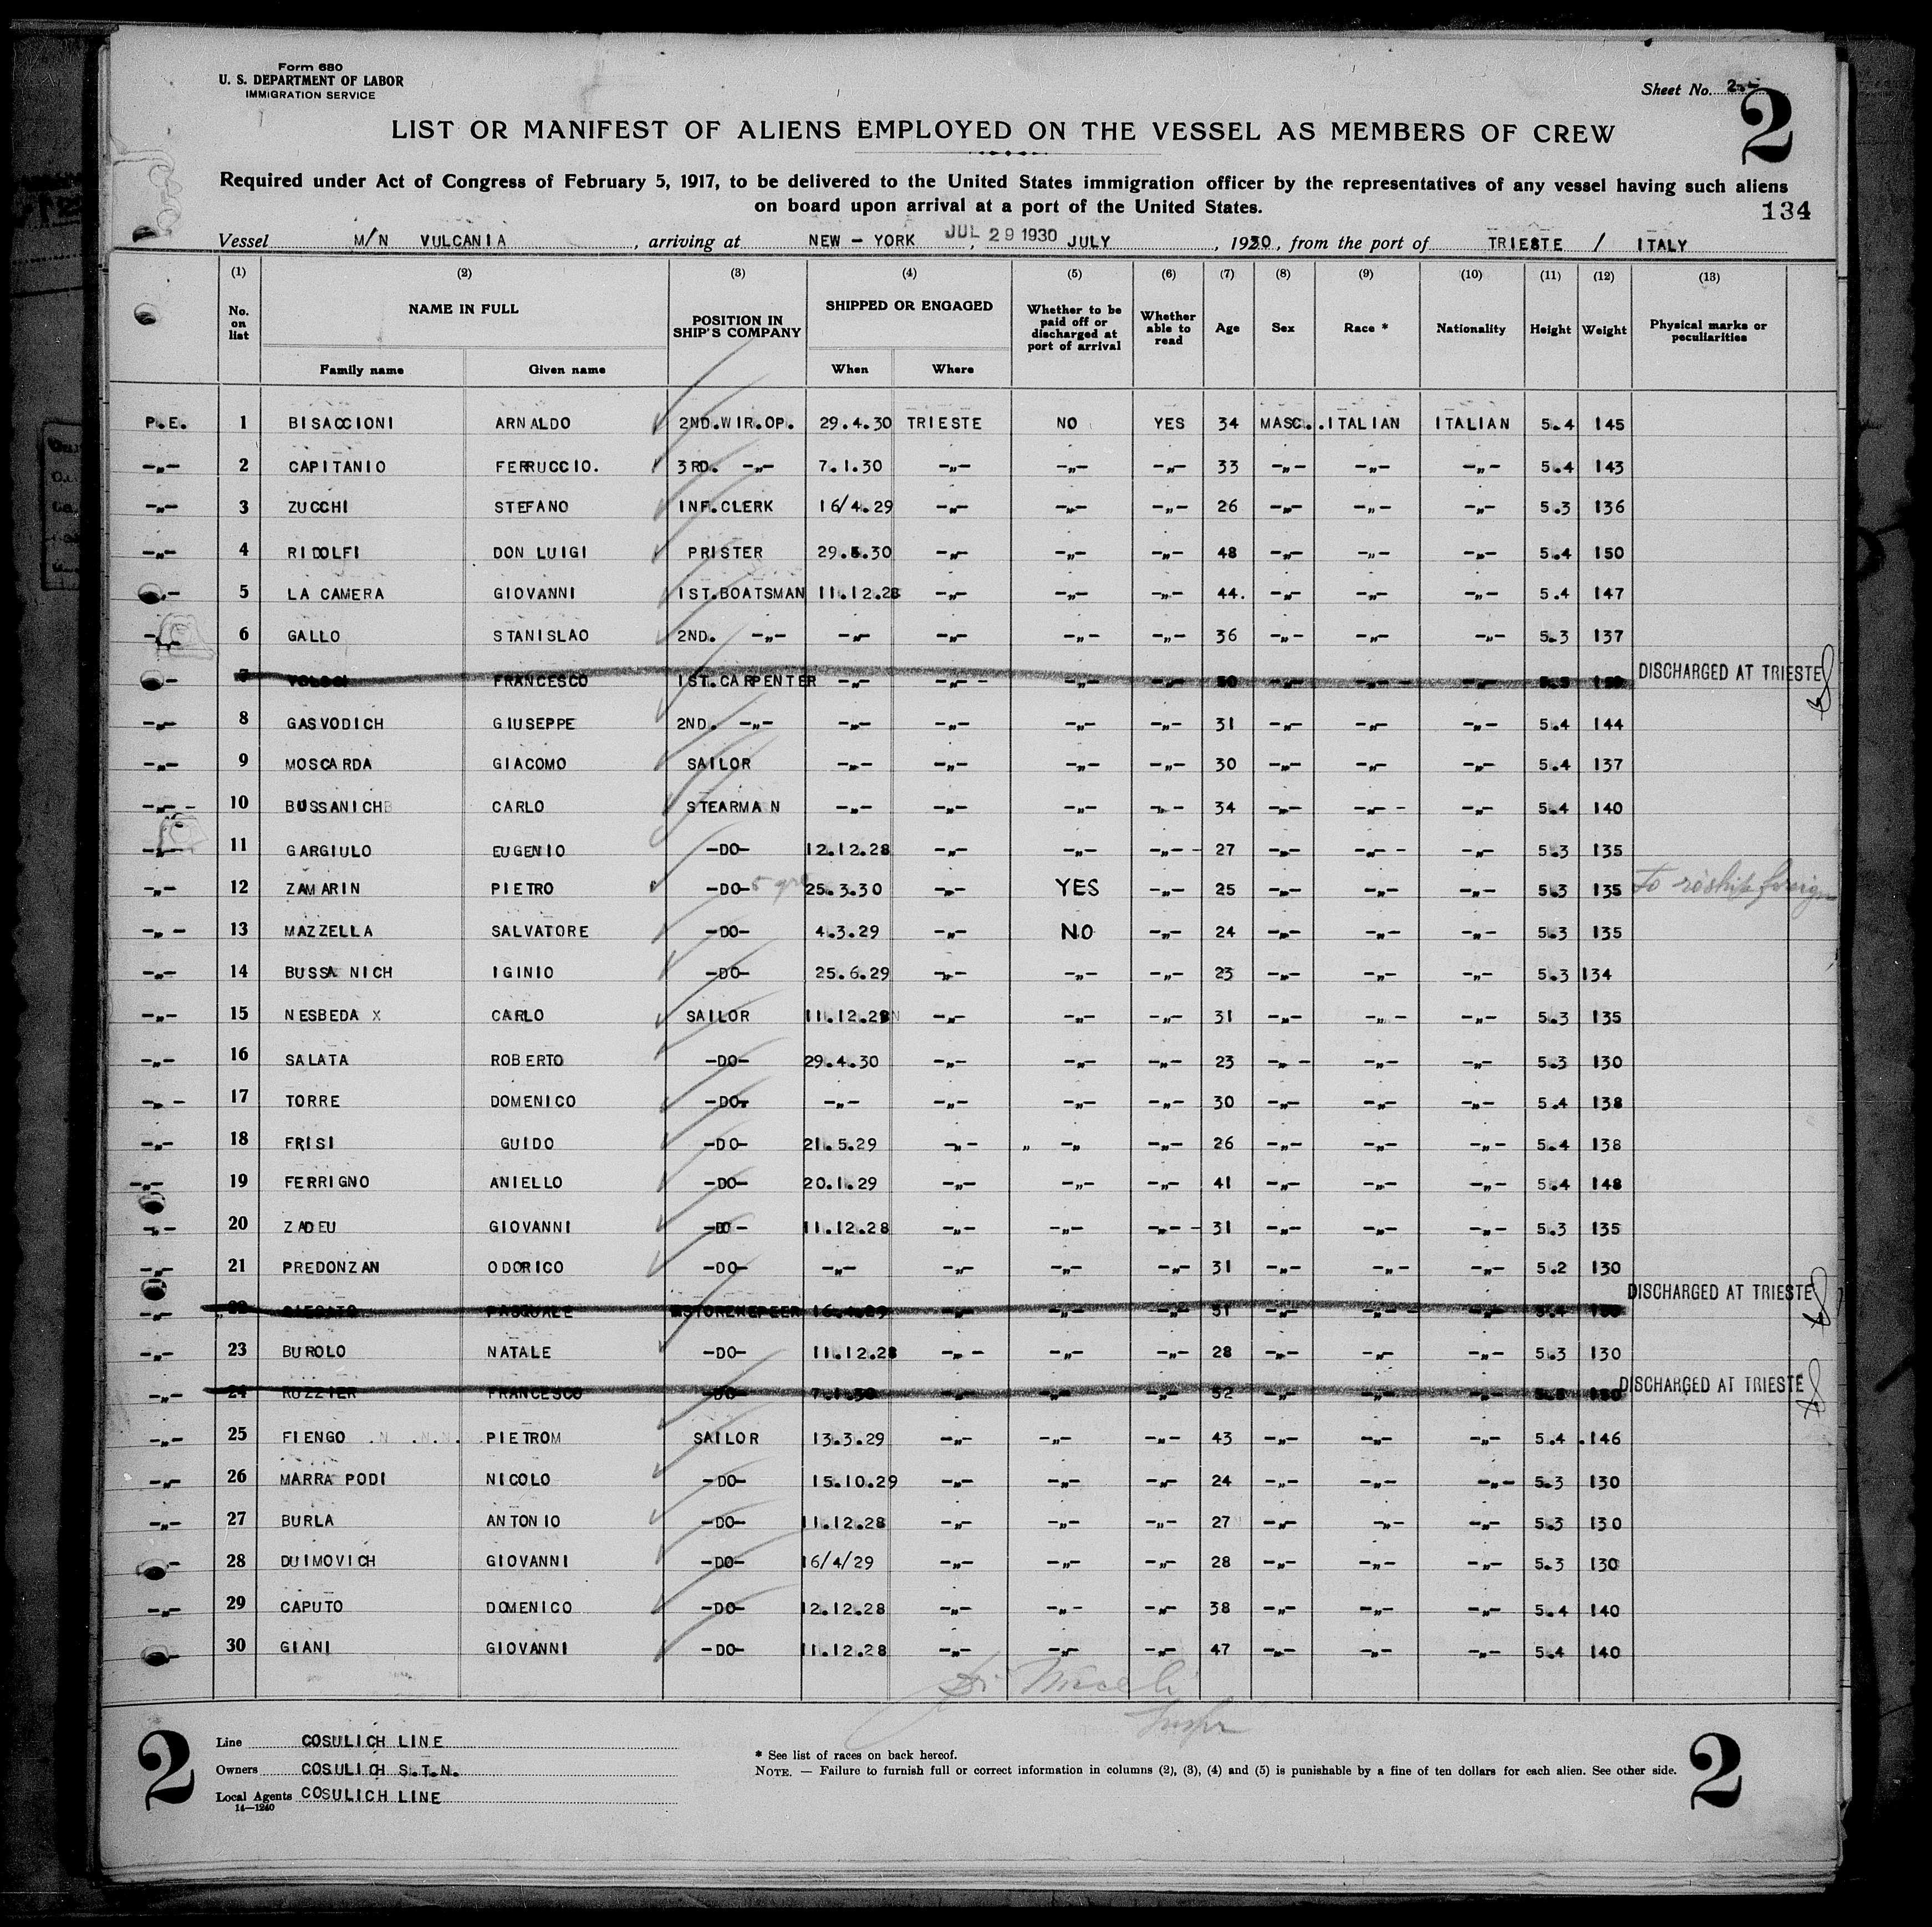 Form 680
U. S. DEPARTMENT OF LABOR
IMMIGRATION SERVICE
Sheet No. 2
2
LIST OR MANIFEST OF ALIENS EMPLOYED ON THE VESSEL AS MEMBERS OF CREW
Required under Act of Congress of February 5, 1917, to be delivered to the United States immigration officer by the representatives of any vessel having such aliens
on board upon arrival at a port of the United States.
134
Vessel M/N VULCANIA, arriving at NEW-YORK JUL 29 1930 JULY, 1930, from the port of TRIESTE / ITALY
(1) (2) (3) (4) (5) (6) (7) (8) (9) (10) (11) (12) (13)
No. on list NAME IN FULL POSITION IN SHIP'S COMPANY SHIPPED OR ENGAGED Whether to be paid off or discharged at port of arrival Whether able to read Age Sex Race * Nationality Height Weight Physical marks or peculiarities
Family name Given name When Where
P.E. 1 BISACCIONI ARNALDO 2ND.WIR.OP. 29.4.30 TRIESTE NO YES 34 MASC. ITALIAN ITALIAN 5.4 145
-"- 2 CAPITANIO FERRUCCIO. 3RD. -"- 7.1.30 -"- -"- -"- 33 -"- -"- -"- 5.4 143
-"- 3 ZUCCHI STEFANO INF.CLERK 16/4.29 -"- -"- -"- 26 -"- -"- -"- 5.3 136
-"- 4 RIDOLFI DON LUIGI PRISTER 29.5.30 -"- -"- -"- 48 -"- -"- -"- 5.4 150
-"- 5 LA CAMERA GIOVANNI 1ST.BOATSMAN 11.12.28 -"- -"- -"- 44. -"- -"- -"- 5.4 147
-"- 6 GALLO STANISLAO 2ND. -"- -"- -"- -"- -"- 36 -"- -"- -"- 5.3 137
-"- 7 FRANCESCO 1ST.CARPENTER -"- -"- -"- -"- 50 -"- -"- -"- DISCHARGED AT TRIESTE
-"- 8 GASVODICH GIUSEPPE 2ND. -"- -"- -"- -"- -"- 31 -"- -"- -"- 5.4 144
-"- 9 MOSCARDA GIACOMO SAILOR -"- -"- -"- -"- 30 -"- -"- -"- 5.4 137
-"- 10 BUSSANICH CARLO STEARMAN -"- -"- -"- -"- 34 -"- -"- -"- 5.4 140
-"- 11 GARGIULO EUGENIO -DO- 12.12.28 -"- -"- -"- 27 -"- -"- -"- 5.3 135
-"- 12 ZAMARIN PIETRO -DO- 25.3.30 -"- YES -"- 25 -"- -"- -"- 5.3 135 To reship foreign
-"- 13 MAZZELLA SALVATORE -DO- 4.3.29 -"- NO -"- 24 -"- -"- -"- 5.3 135
-"- 14 BUSSA NICH IGINIO -DO- 25.6.29 -"- -"- -"- 23 -"- -"- -"- 5.3 134
-"- 15 NESBEDA X CARLO SAILOR 11.12.28 -"- -"- -"- 31 -"- -"- -"- 5.3 135
-"- 16 SALATA ROBERTO -DO- 29.4.30 -"- -"- -"- 23 -"- -"- -"- 5.3 130
-"- 17 TORRE DOMENICO -DO- -"- -"- -"- -"- 30 -"- -"- -"- 5.4 138
-"- 18 FRISI GUIDO -DO- 21.5.29 -"- " -" -"- 26 -"- -"- -"- 5.4 138
-"- 19 FERRIGNO ANIELLO -DO- 20.1.29 -"- -"- -"- 41 -"- -"- -"- 5.4 148
-"- 20 ZADEU GIOVANNI -DO- 11.12.28 -"- -"- -"- 31 -"- -"- -"- 5.3 135
-"- 21 PREDONZAN ODORICO -DO- -"- -"- -"- -"- 31 -"- -"- -"- 5.2 130
-"- 22 PASQUALE STOREKEPEER 16.4.29 -"- -"- -"- 51 -"- -"- -"- 5.4 DISCHARGED AT TRIESTE
-"- 23 BUROLO NATALE -DO- 11.12.28 -"- -"- -"- 28 -"- -"- -"- 5.3 130
-"- 24 RUZZIER FRANCESCO -DO- 7.1.30 -"- -"- -"- 52 -"- -"- -"- DISCHARGED AT TRIESTE
-"- 25 FIENGO PIETRO SAILOR 13.3.29 -"- -"- -"- 43 -"- -"- -"- 5.4 .146
-"- 26 MARRA PODI NICOLO -DO- 15.10.29 -"- -"- -"- 24 -"- -"- -"- 5.3 130
-"- 27 BURLA ANTONIO -DO- 11.12.28 -"- -"- -"- 27 -"- -"- -"- 5.3 130
-"- 28 DUIMOVICH GIOVANNI -DO- 16/4/29 -"- -"- -"- 28 -"- -"- -"- 5.3 130
-"- 29 CAPUTO DOMENICO -DO- 12.12.28 -"- -"- -"- 38 -"- -"- -"- 5.4 140
-"- 30 GIANI GIOVANNI -DO- 11.12.28 -"- -"- -"- 47 -"- -"- -"- 5.4 140
2
Line COSULICH LINE
Owners COSULICH S.T.N.
Local Agents COSULICH LINE
14—1240
* See list of races on back hereof.
NOTE. — Failure to furnish full or correct information in columns (2), (3), (4) and (5) is punishable by a fine of ten dollars for each alien. See other side.
2